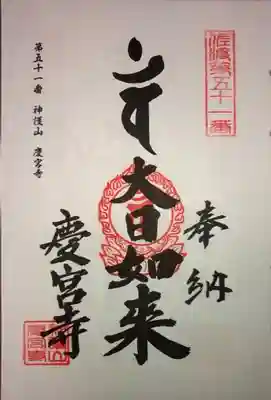 佐渡第五十一番
奉納
大日如来
慶宮寺
第五十一番 神護山 慶宮寺